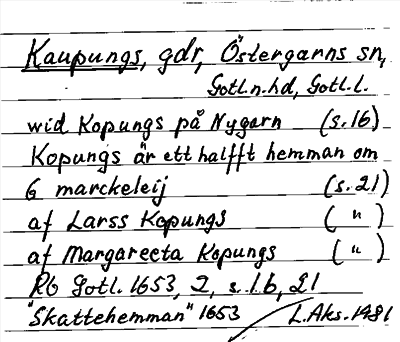 Kaupungs, gdr, Östergarns sn,
Gotl.n.hd, Gotl.l.
wid Kopungs på Nygarn (s.16)
Kopungs är ett halfft hemman om
6 marckeleij (s.21)
af Larss Kopungs ( " )
af Margareeta Kopungs ( " )
Rb Gotl. 1653, 2, s.16, 21
"Skattehemman" 1653 L.Aks. 1981